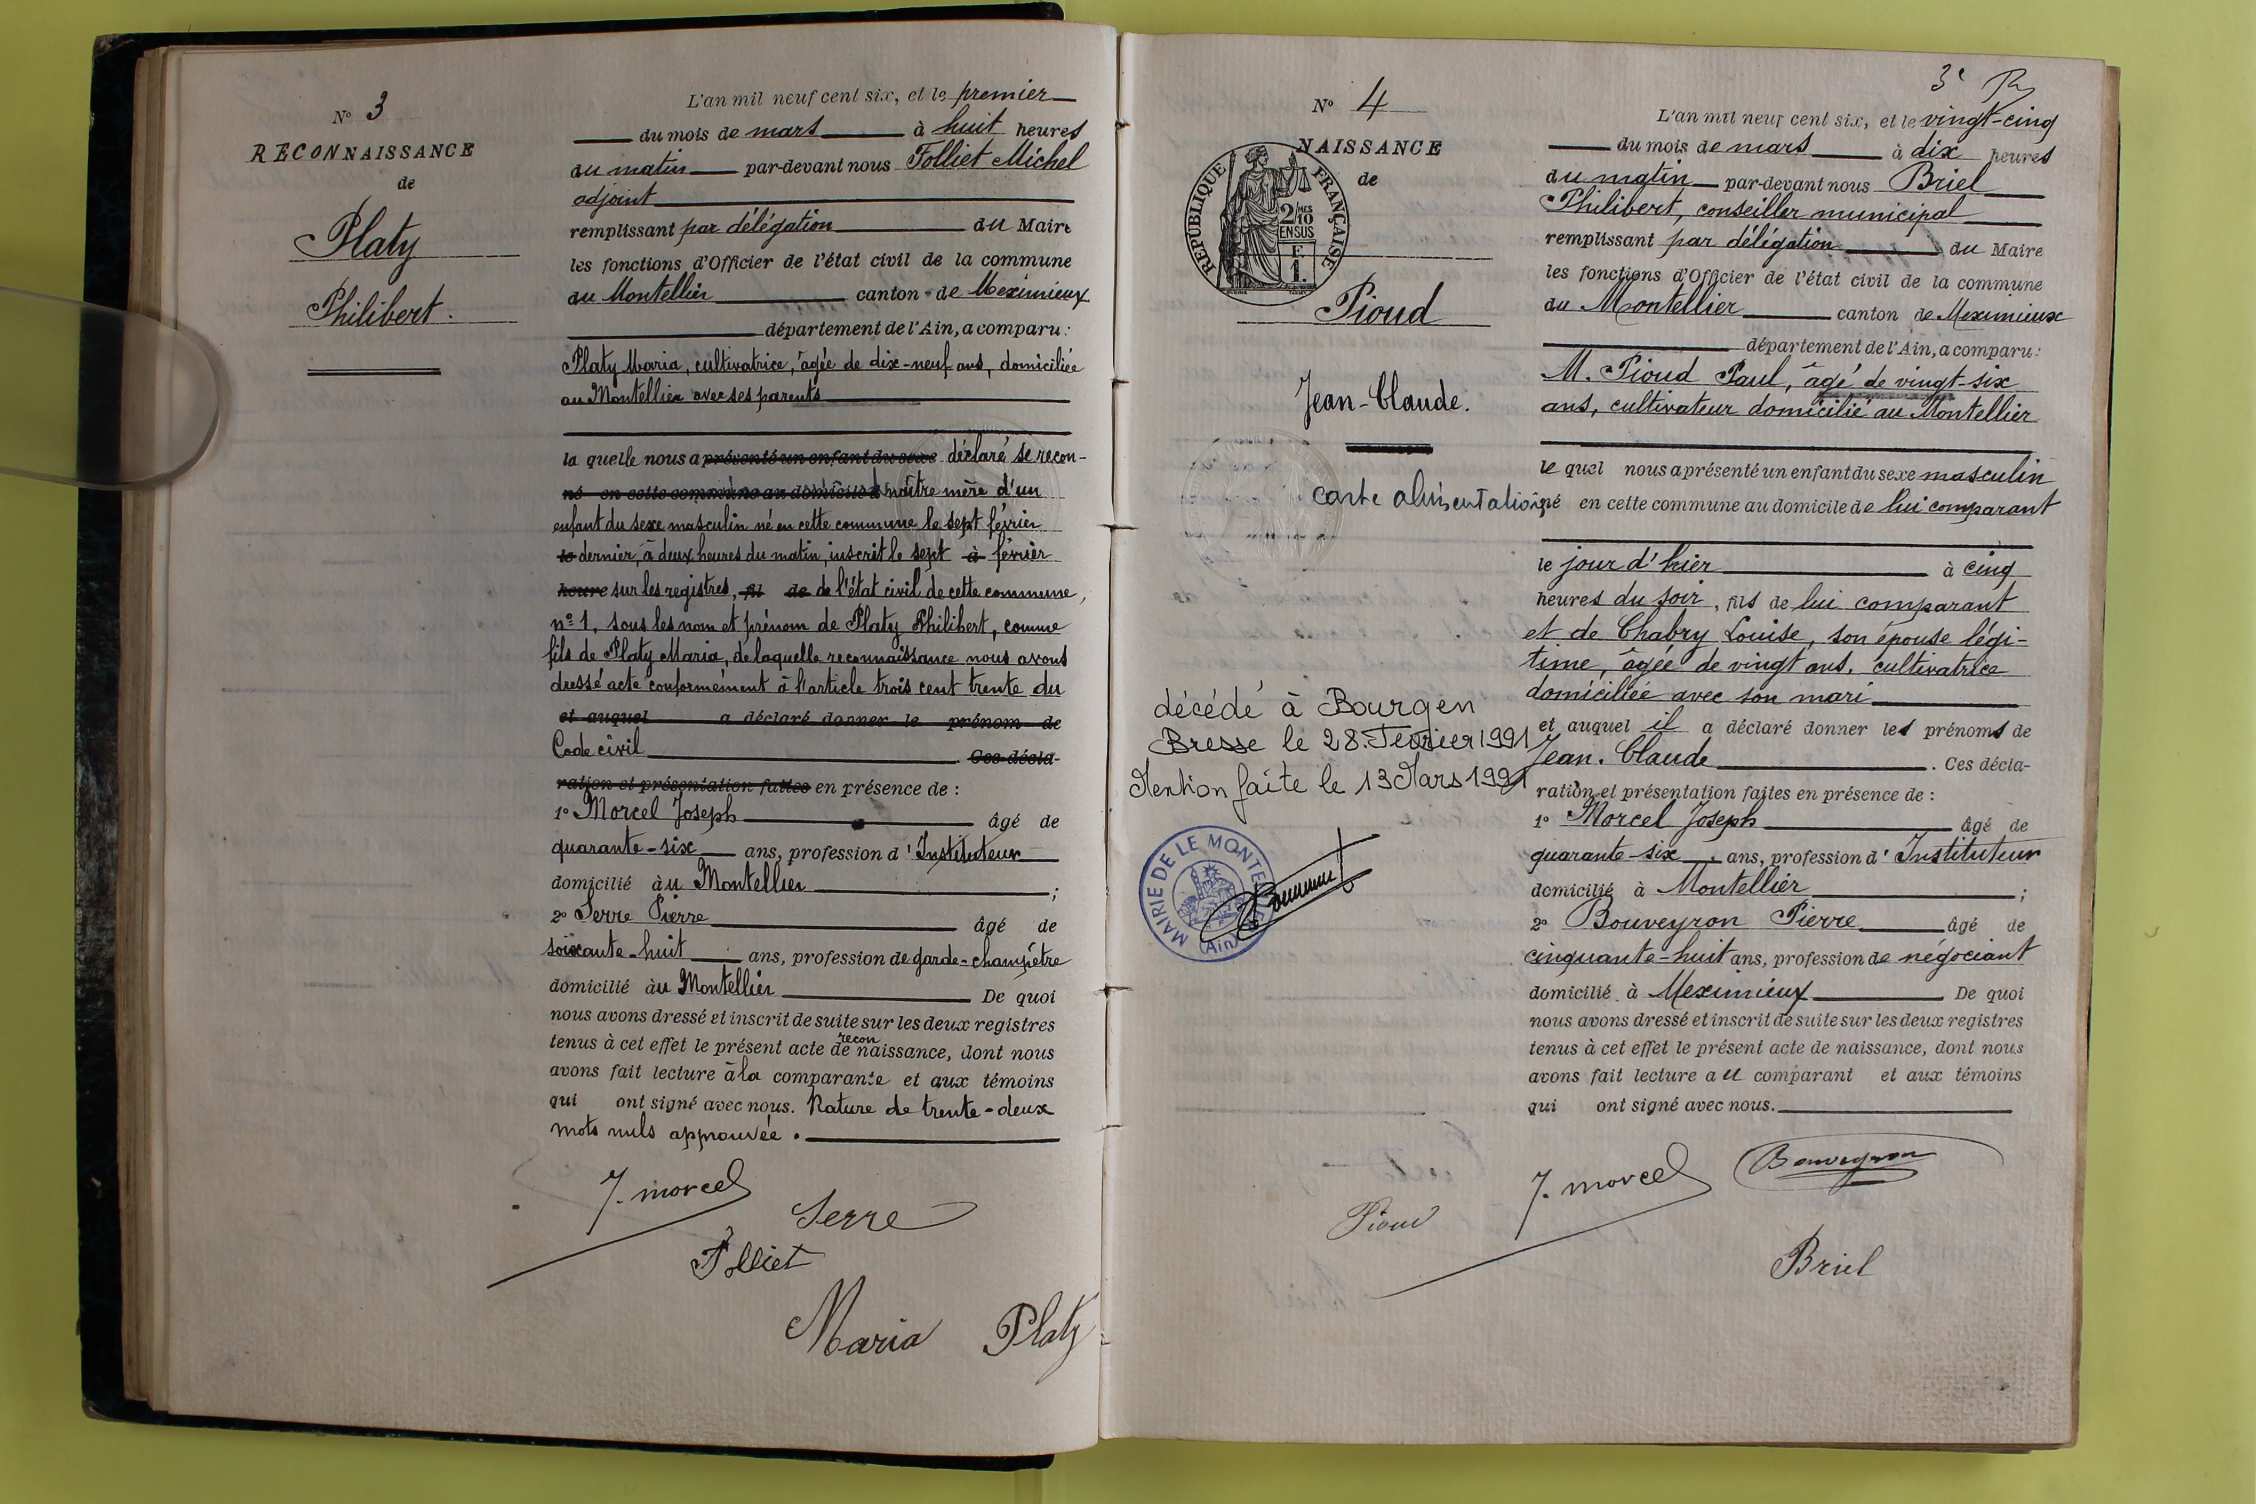 N° 3
RECONNAISSANCE
de
Platy
Philibert.
L'an mil neuf cent six, et le premier
du mois de mars à huit heures
du matin par-devant nous Folliet Michel
adjoint
remplissant par délégation du Maire
les fonctions d'Officier de l'état civil de la commune
du Montellier canton de Meximieux
département de l'Ain, a comparu :
Platy Maria, cultivatrice, âgée de dix-neuf ans, domiciliée
au Montellier avec ses parents
la quelle nous a présenté un enfant du sexe déclaré se recon-
né en cette commune au domicile d naître mère d'un
enfant du sexe masculin né en cette commune le sept février
le dernier, à deux heures du matin, inscrit le sept à février
heure sur les registres, fil de de l'état civil de cette commune,
n° 1, sous les nom et prénom de Platy Philibert, comme
fils de Platy Maria, de laquelle reconnaissance nous avons
dressé acte conformément à l'article trois cent trente du
et auquel a déclaré donner le prénom de
Code civil . Ces décla-
ration et présentation faites en présence de :
1° Morcel Joseph âgé de
quarante-six ans, profession d'Instituteur
domicilié au Montellier ;
2° Serre Pierre âgé de
soixante-huit ans, profession de garde-champêtre
domicilié au Montellier De quoi
nous avons dressé et inscrit de suite sur les deux registres
recon
tenus à cet effet le présent acte de naissance, dont nous
avons fait lecture à la comparante et aux témoins
qui ont signé avec nous. Rature de trente-deux
mots nuls approuvée.
J. Morcel
Serre
Folliet
Maria Platy
3e
N° 4
NAISSANCE
de
RÉPUBLIQUE FRANÇAISE
2/10 MES
EN SUS
F.
1.
Pioud
Jean-Claude.
carte alimentation
décédé à Bourg en
Bresse le 28 Février 1991
Mention faite le 13 Mars 1991
MAIRIE DE LE MONTE
(Ain)
L'an mil neuf cent six, et le vingt-cinq
du mois de mars à dix heures
du matin par-devant nous Briel
Philibert, conseiller municipal
remplissant par délégation du Maire
les fonctions d'Officier de l'état civil de la commune
du Montellier canton de Meximieux
département de l'Ain, a comparu :
M. Pioud Paul, âgé de vingt-six
ans, cultivateur domicilié au Montellier
le quel nous a présenté un enfant du sexe masculin
né en cette commune au domicile de lui comparant
le jour d'hier à cinq
heures du soir, fils de lui comparant
et de Chabry Louise, son épouse légi-
time, âgée de vingt ans, cultivatrice
domiciliée avec son mari
et auquel il a déclaré donner les prénoms de
Jean-Claude . Ces décla-
ration et présentation faites en présence de :
1° Morcel Joseph âgé de
quarante-six ans, profession d'Instituteur
domicilié à Montellier ;
2° Bouveyron Pierre âgé de
cinquante-huit ans, profession de négociant
domicilié à Meximieux De quoi
nous avons dressé et inscrit de suite sur les deux registres
tenus à cet effet le présent acte de naissance, dont nous
avons fait lecture au comparant et aux témoins
qui ont signé avec nous.
J. Morcel
Bouveyron
Pioud
Briel